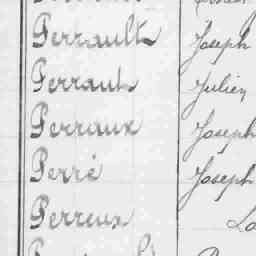 Perrault Joseph
Perrault Julien
Perraux Joseph
Perré Joseph
Perreux